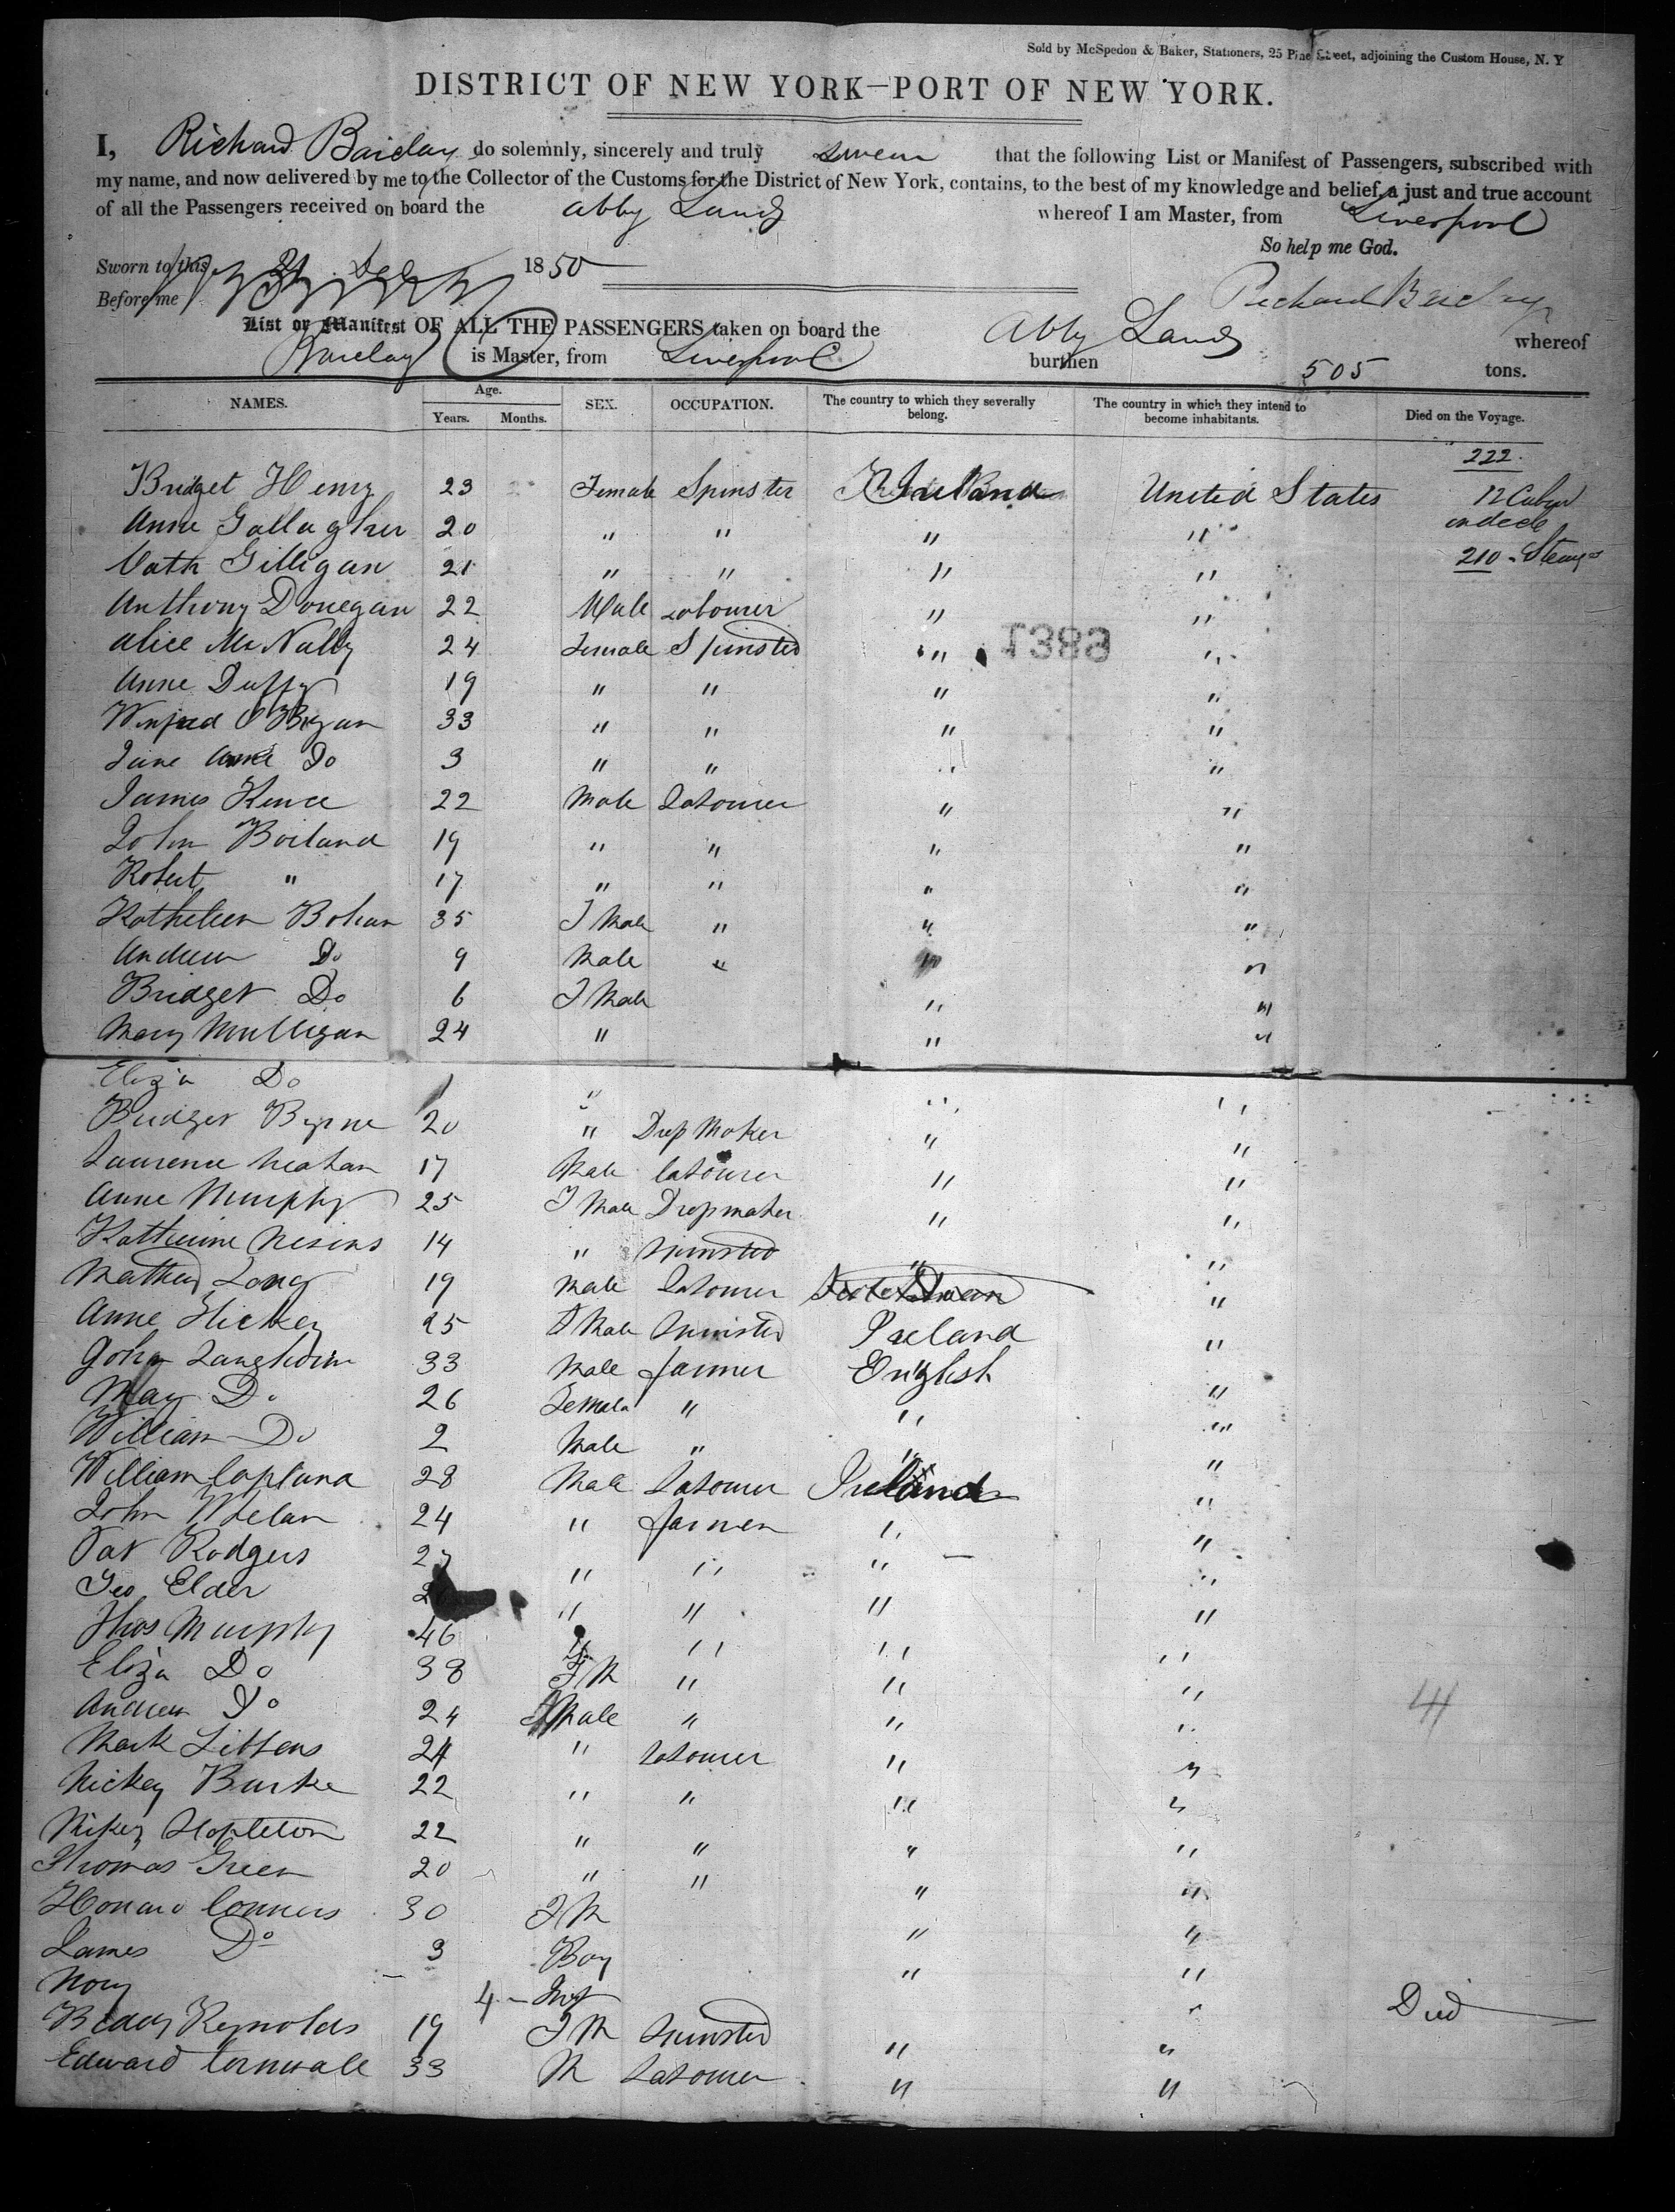 Sold by McSpedon & Baker, Stationers, 25 Pine Street, adjoining the Custom House, N. Y
DISTRICT OF NEW YORK—PORT OF NEW YORK.
I, Richard Barclay do solemnly, sincerely and truly swear that the following List or Manifest of Passengers, subscribed with
my name, and now delivered by me to the Collector of the Customs for the District of New York, contains, to the best of my knowledge and belief, a just and true account
of all the Passengers received on board the Abby Land whereof I am Master, from Liverpool
So help me God.
Sworn to this 31 Dec 1850
Before me
Richard Barclay
List or Manifest OF ALL THE PASSENGERS taken on board the Abby Land whereof
Barclay is Master, from Liverpool burthen 505 tons.
NAMES. Age. Years. Months. SEX. OCCUPATION. The country to which they severally belong. The country in which they intend to become inhabitants. Died on the Voyage.
222.
Bridget Henry 23 Female Spinster Ireland United States 12 Cabin
Anne Gallagher 20 " " " " on deck
Cath Gilligan 21 " " " " 210 Steage
Anthony Donegan 22 Male Labourer " "
Alice McNally 24 Female Spinster " "
1389
Anne Duffy 19 " " " "
Winifred O Bryan 33 " " " "
Jane Anne Do 3 " " " "
James Kence 22 Male Labourer " "
John Boiland 19 " " " "
Robert " 17 " " " "
Kathleen Bohan 35 F Male " " "
Andrew Do 9 Male " " "
Bridget Do 6 F Male " "
Mary Mulligan 24 " " "
Eliza Do 1 " " "
Bridget Byrne 20 " Dress Maker " "
Laurence Meahan 17 Male Labourer " "
Anne Murphy 25 F Male Dressmaker " "
Katherine Nesins 14 " Spinster " "
Mathew Long 19 Male Labourer "
Anne Hickey 25 F Male Spinster Ireland "
John Langhorn 33 Male Farmer English "
May Do 26 Female " " "
William Do 2 Male " " "
William Copland 28 Male Labourer Ireland "
John Whelan 24 " Farmer " "
Pat Rodgers 27 " " " "
Geo Elder " " " "
Thos Murphy 46 " " " "
Eliza Do 38 F M " " "
Andrew Do 24 Male " " "
Mark Littens 24 " Labourer " "
Mickey Burke 22 " " " "
Mikey Stapleton 22 " " " "
Thomas Green 20 " " " "
Honara Conners 30 F M " "
James Do 3 Boy " "
Mary 4 Inft " Died
Biddy Reynolds 19 F M Spinster " "
Edward Cornwale 33 M Labourer " "